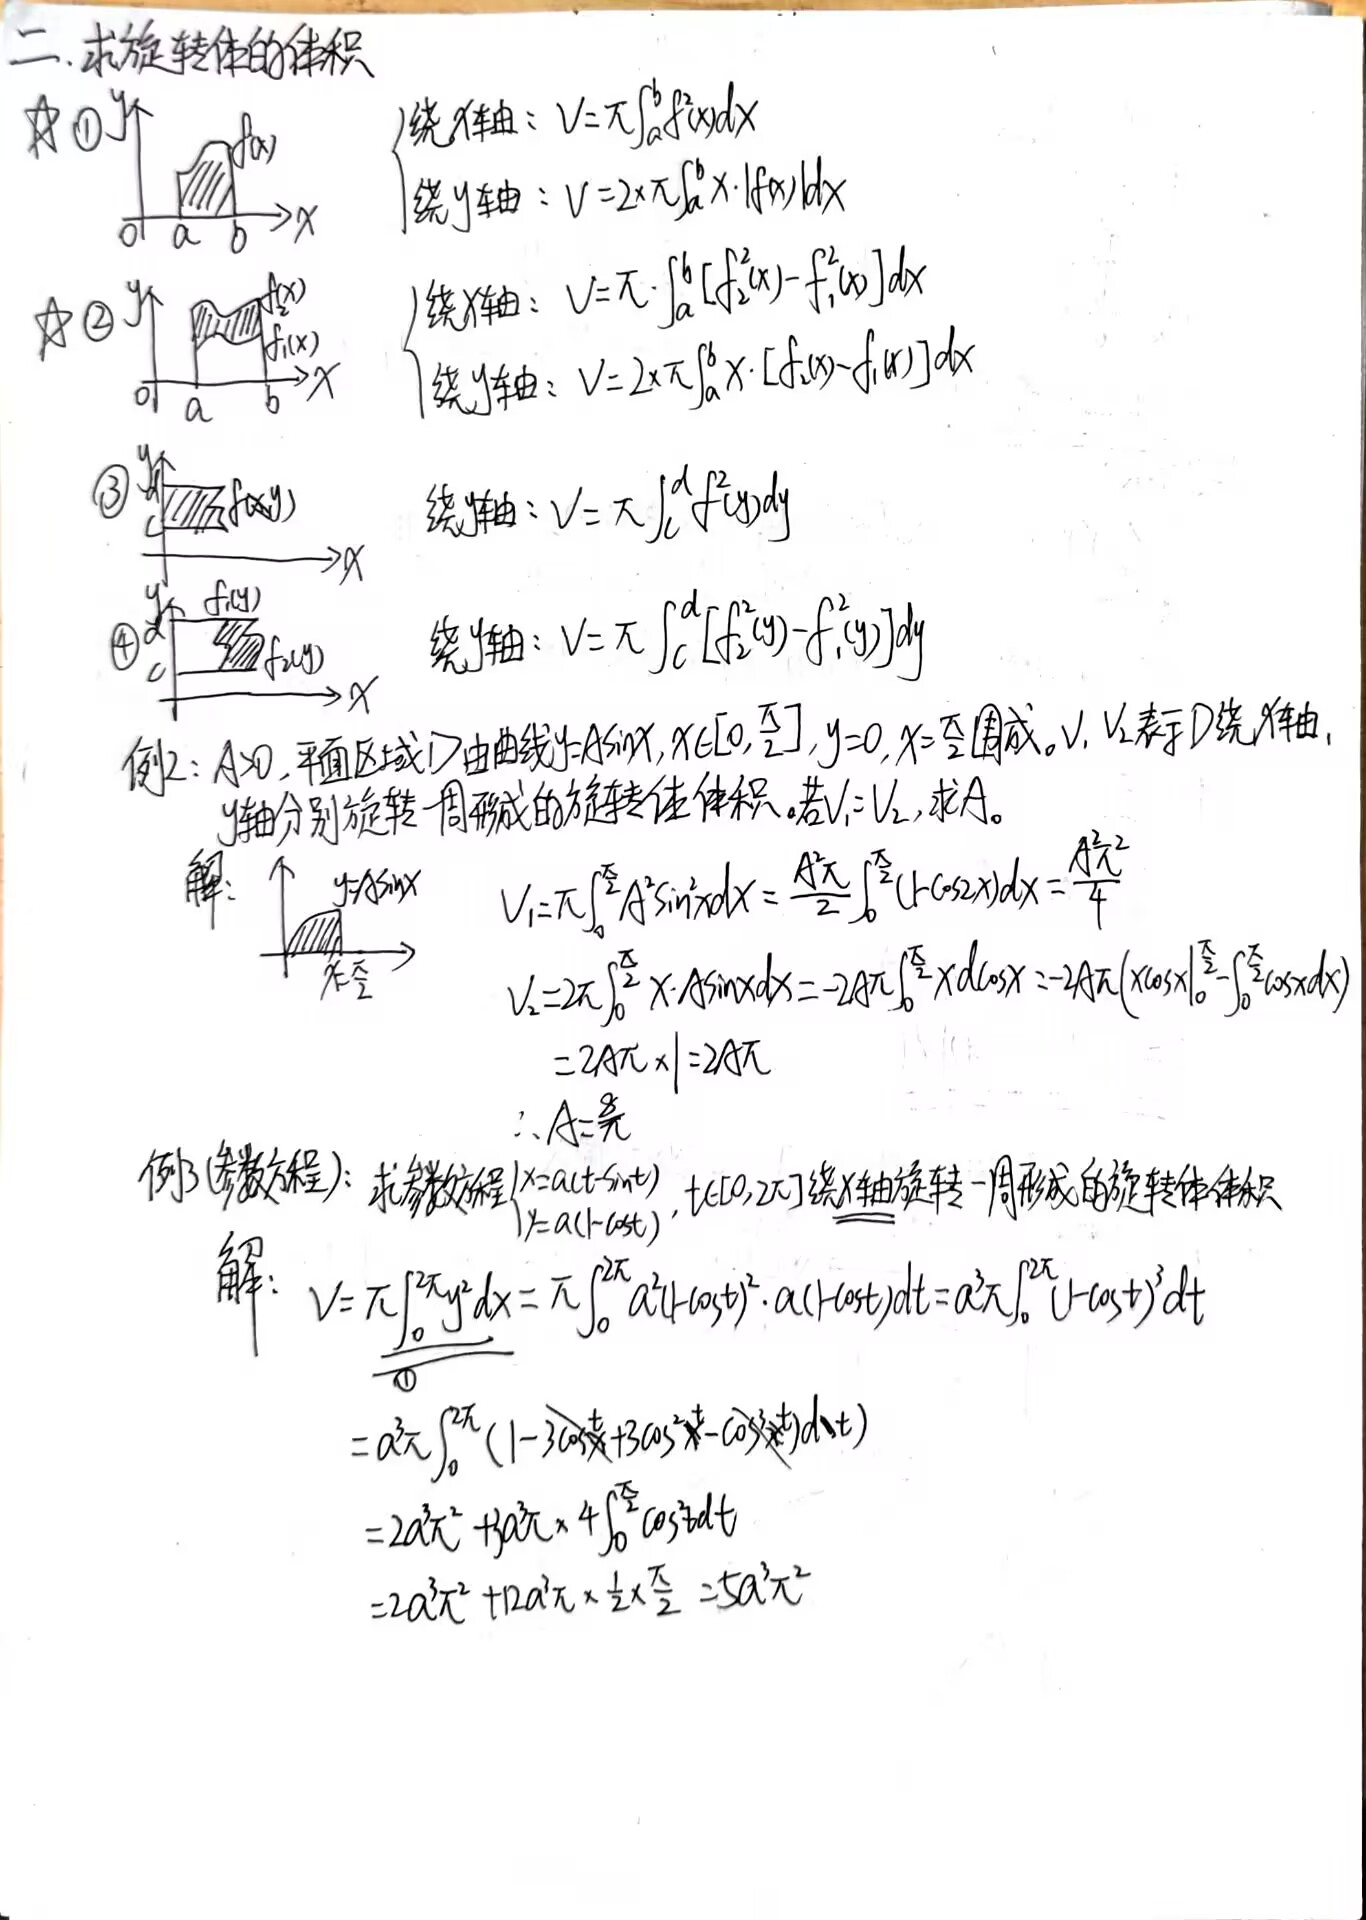 二.求旋转体的体积
☆① y f(x) 0 a b x
绕x轴: V=π∫ₐᵇf²(x)dx
绕y轴: V=2×π∫ₐᵇx·|f(x)|dx
☆② y f₂(x) f₁(x) 0 a b x
绕x轴: V=π·∫ₐᵇ[f₂²(x)-f₁²(x)]dx
绕y轴: V=2×π∫ₐᵇx·[f₂(x)-f₁(x)]dx
③ y d c f(y) x
绕y轴: V=π∫_c^d f²(y)dy
④ y d c f₁(y) f₂(y) x
绕y轴: V=π∫_c^d[f₂²(y)-f₁²(y)]dy
例2: A>0,平面区域D由曲线y=Asinx,x∈[0,π/2],y=0,x=π/2围成。V₁ V₂表示D绕x轴,
y轴分别旋转一周形成的旋转体体积。若V₁=V₂,求A。
解: y=Asinx x=π/2
V₁=π∫₀^(π/2)A²sin²xdx=A²π/2∫₀^(π/2)(1-cos2x)dx=A²π²/4
V₂=2π∫₀^(π/2)x·Asinxdx=-2Aπ∫₀^(π/2)xdcosx=-2Aπ(xcosx|₀^(π/2)-∫₀^(π/2)cosxdx)
=2Aπ×1=2Aπ
∴A=8/π
例3(参数方程): 求参数方程{x=a(t-sint) y=a(1-cost),t∈[0,2π]绕x轴旋转一周形成的旋转体体积
解: V=π∫₀^(2π)y²dx=π∫₀^(2π)a²(1-cost)²·a(1-cost)dt=a³π∫₀^(2π)(1-cost)³dt
①
=a³π∫₀^(2π)(1-3cost+3cos²t-cos³t)dt
=2a³π²+3a³π×4∫₀^(π/2)cos²tdt
=2a³π²+12a³π×1/2×π/2=5a³π²